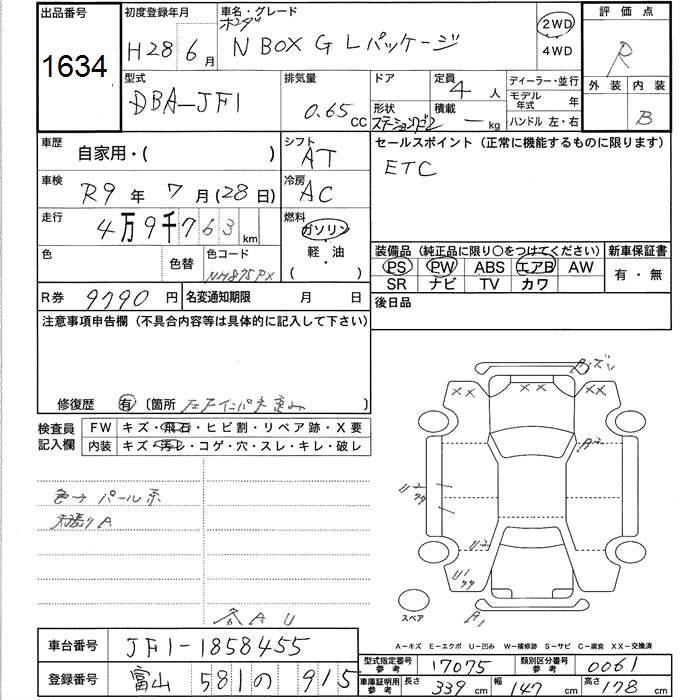 出品番号
1634
初度登録年月
H28年6月
車名・グレード
ホンダ
N BOX G Lパッケージ
2WD
4WD
評価点
R
外装 内装
B
型式
DBA-JF1
排気量
0.65 CC
ドア
形状
ステーションワゴン
定員
4 人
積載
— kg
ディーラー・並行
モデル年式 年
ハンドル 左・右
車歴
自家用・( )
シフト
AT
セールスポイント (正常に機能するものに限ります)
ETC
車検
R9 年 7 月 (28 日)
冷房
AC
走行
4万9千763 km
燃料
ガソリン
軽・油
( )
色
色替
色コード
NH875PX
装備品 (純正品に限り○をつけてください)
新車保証書
PS PW ABS エアB AW
有・無
SR ナビ TV カワ
R券 9790 円
名変通知期限 月 日
後日品
注意事項申告欄 (不具合内容等は具体的に記入して下さい)
修復歴 有 〔箇所 〕
検査員記入欄
FW キズ・飛石・ヒビ割・リペア跡・X要
内装 キズ・汚レ・コゲ・穴・スレ・キレ・破レ
色→パール系
天張りA
各AU
XX
XX
XX
A2
U2
U2
U1
A1
スペア
A-キズ E-エクボ U-凹み W-補修跡 S-サビ C-腐食 XX-交換済
車台番号
JF1-1858455
登録番号
富山 581 の 915
型式指定番号 参考 17075
類別区分番号 参考 0061
車庫証明用 参考 長さ 339 cm 幅 147 cm 高さ 178 cm